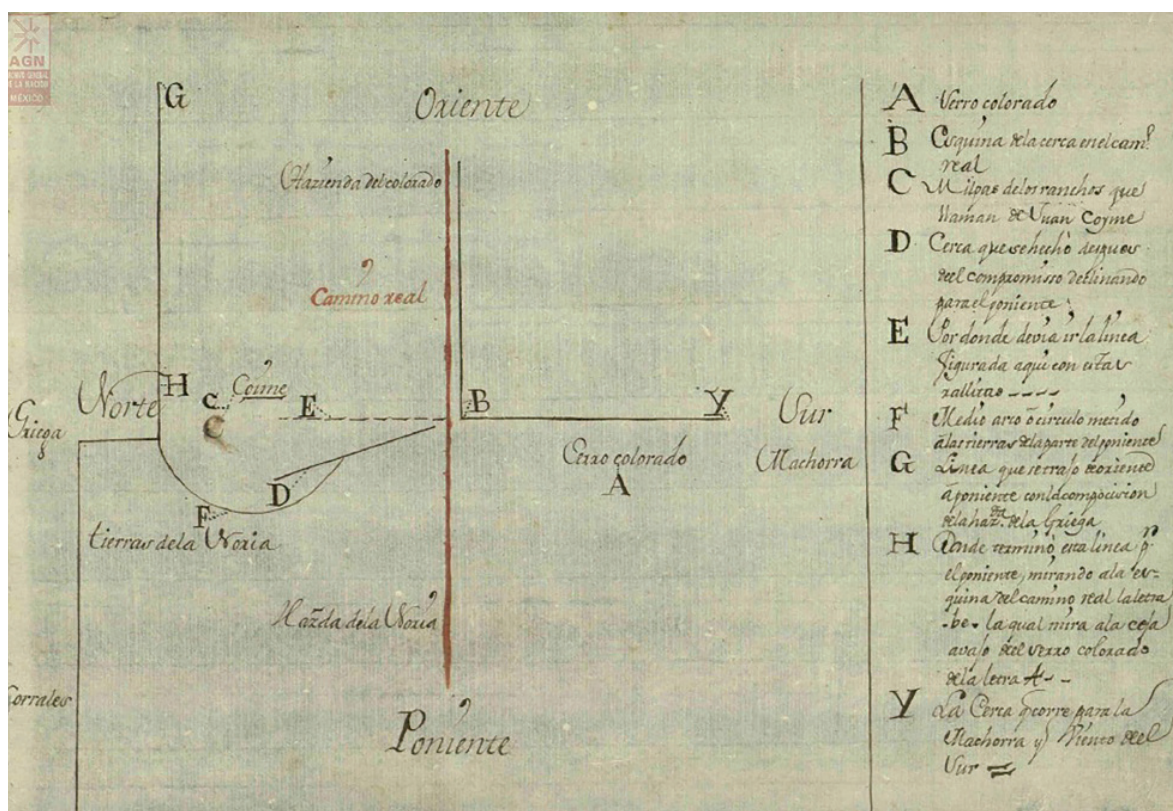 AGN
ARCHIVO GENERAL
DE LA NACIÓN
MÉXICO
G
Oriente
Hazienda del colorado
Camino real
H
Norte
Coime
C
C
E
B
Y
Sur
Griega
Cerro colorado
Machorra
A
D
F
tierras dela Noria
Hazda dela Noria
Corrales
Poniente
A Serro colorado
B Esquina dela cerca en el camº
real
C Milpas delos ranchos que
llaman de Juan Coyme
D Cerca que se hechò despues
deel compromisso declinando
para el poniente
E Por donde devia ir la linea
figurada aqui con estas
rallitas ----
F Medio arco ò circulo metido
a las tierras dela parte del poniente
G Linea que se trajo de oriente
à poniente con la composision
dela hazda. de la Griega
H Donde terminò esta linea pª
el poniente, mirando ala es-
quina del camino real la letra
-be- la qual mira ala ceja
avajo deel serro colorado
dela letra A--
Y La Cerca q corre para la
Machorra y Viento deel
Sur